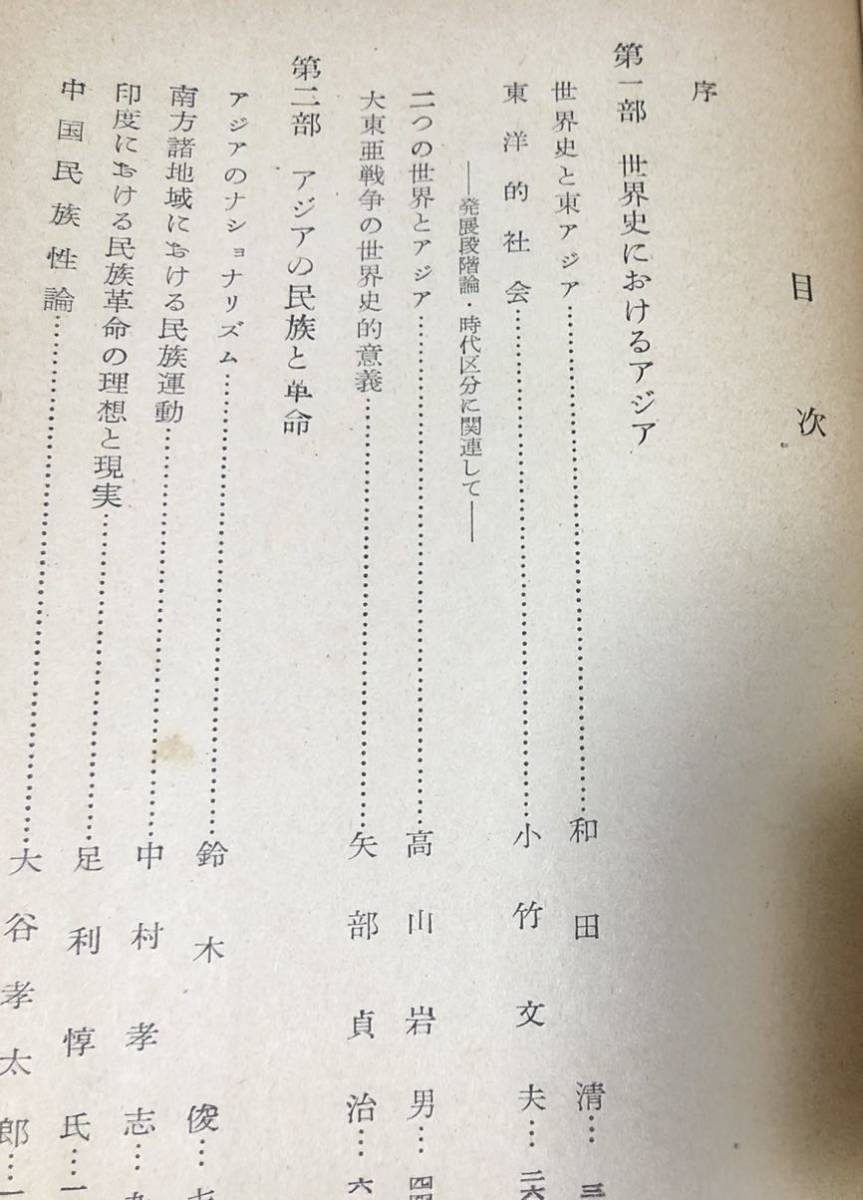 目次
序
第一部 世界史におけるアジア
世界史と東アジア……和田 清…三
東洋的社会……小竹文夫…二六
――発展段階論・時代区分に関連して――
二つの世界とアジア……高山岩男…四四
大東亜戦争の世界史的意義……矢部貞治…六
第二部 アジアの民族と革命
アジアのナショナリズム……鈴木 俊…七
南方諸地域における民族運動……中村孝志…九
印度における民族革命の理想と現実……足利惇氏…一
中国民族性論……大谷孝太郎…一